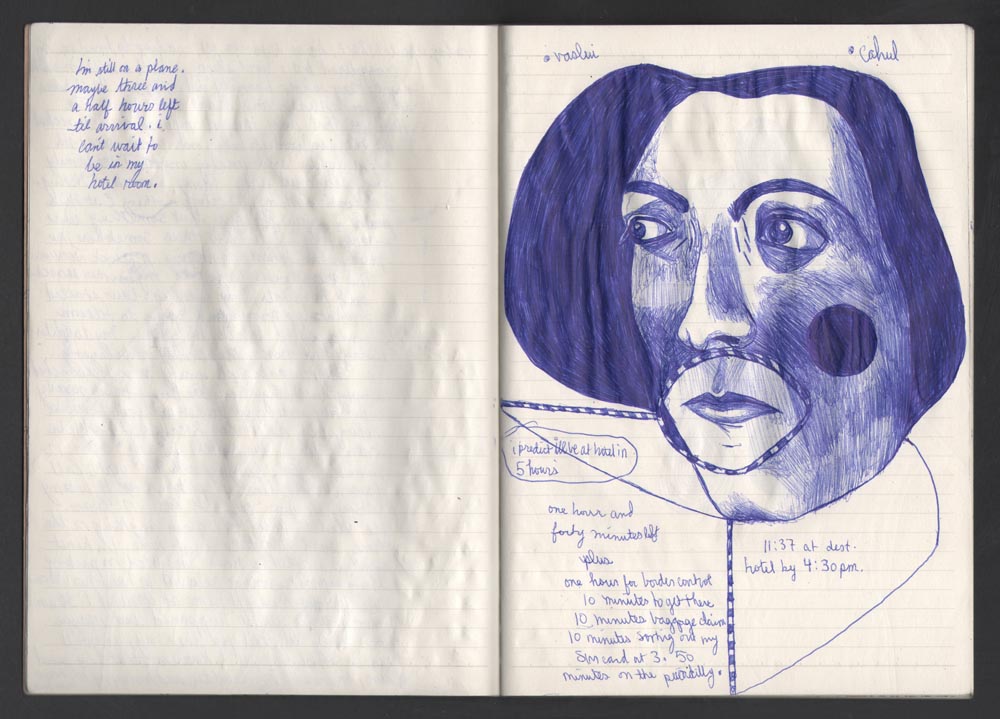 I'm still on a plane.
maybe three and
a half hours left
til arrival. i
can't wait to
be in my
hotel room.
vaslui
cahul
i predict i'll be at hotel in
5 hours
one hour and
forty minutes left
plus
one hour for border control
10 minutes to get there
10 minutes baggage claim
10 minutes sorting out my
Sim card at 3. 50
minutes on the picadilly.
11:37 at dest.
hotel by 4:30pm.